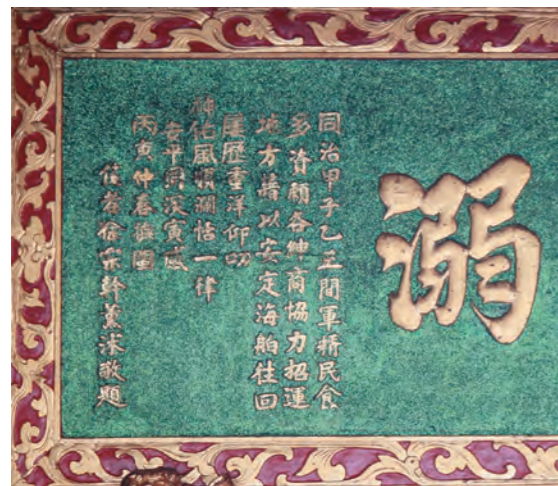 溺
同治甲子乙丑間軍糈民食
多資籲各紳商協力招運
地方藉以安定海舶往回
屢歷重洋仰叨
神佑風順瀾恬一律
安平同深寅感
丙寅仲春
信宗幹薰沐敬題